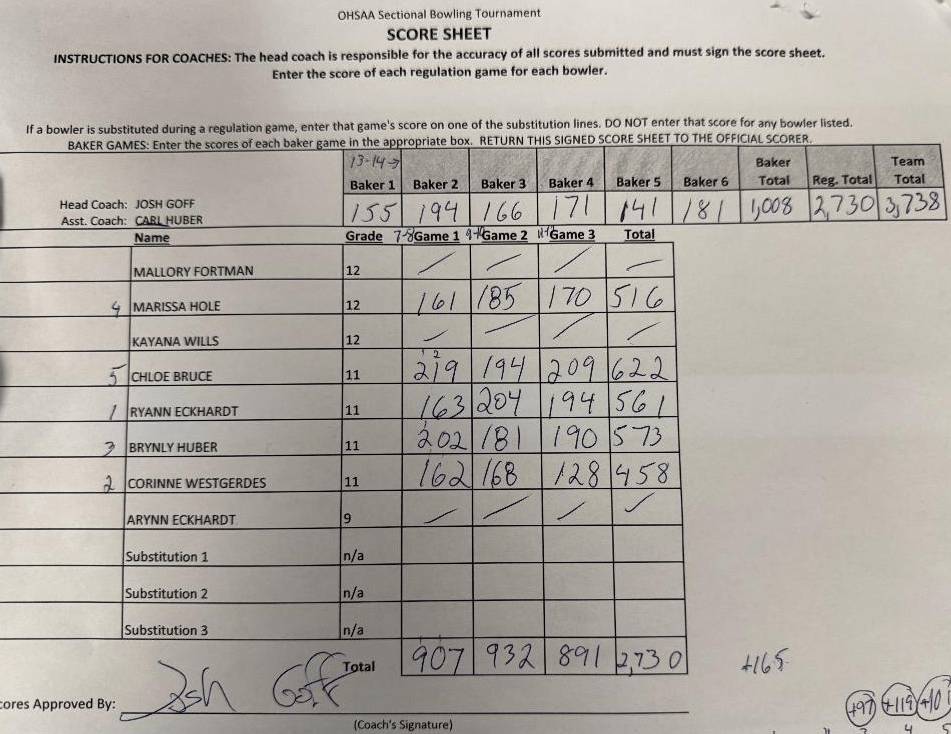 OHSAA Sectional Bowling Tournament
SCORE SHEET
INSTRUCTIONS FOR COACHES: The head coach is responsible for the accuracy of all scores submitted and must sign the score sheet.
Enter the score of each regulation game for each bowler.
If a bowler is substituted during a regulation game, enter that game's score on one of the substitution lines. DO NOT enter that score for any bowler listed.
BAKER GAMES: Enter the scores of each baker game in the appropriate box. RETURN THIS SIGNED SCORE SHEET TO THE OFFICIAL SCORER.
13-14→ Baker Team
Baker 1 Baker 2 Baker 3 Baker 4 Baker 5 Baker 6 Total Reg. Total Total
Head Coach: JOSH GOFF 155 194 166 171 141 181 1,008 2,730 3,738
Asst. Coach: CARL HUBER
Name Grade 7-8 Game 1 Game 2 Game 3 Total
MALLORY FORTMAN 12 / / / /
4 MARISSA HOLE 12 161 185 170 516
KAYANA WILLS 12 / / / /
5 CHLOE BRUCE 11 219 194 209 622
1 RYANN ECKHARDT 11 163 204 194 561
3 BRYNLY HUBER 11 202 181 190 573
2 CORINNE WESTGERDES 11 162 168 128 458
ARYNN ECKHARDT 9 / / / /
Substitution 1 n/a
Substitution 2 n/a
Substitution 3 n/a
Total 907 932 891 2,730 +165
cores Approved By: Josh Goff +97 +119 +10
(Coach's Signature) 4